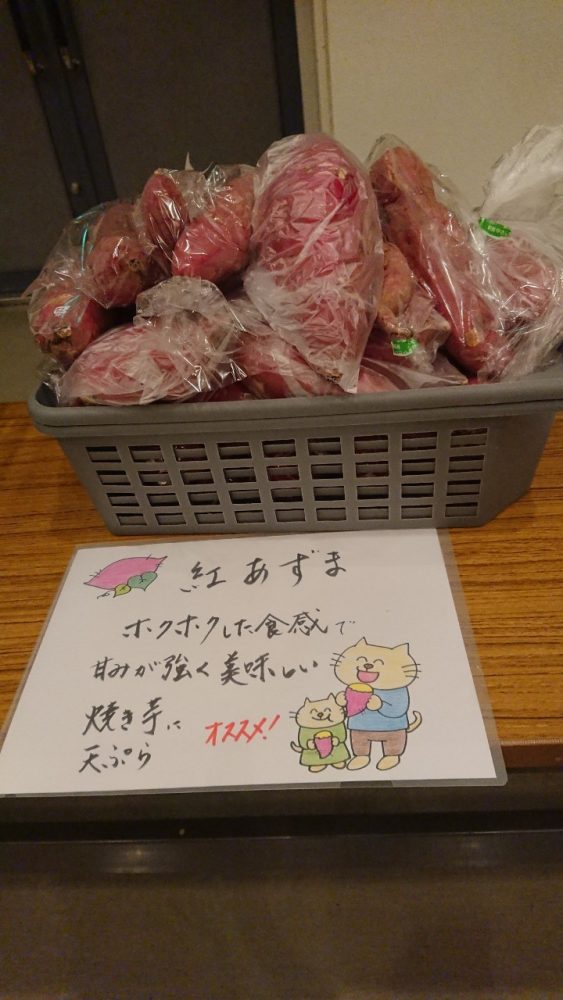 紅あずま
ホクホクした食感で
甘みが強く美味しい
焼き芋に
天ぷら
オススメ!